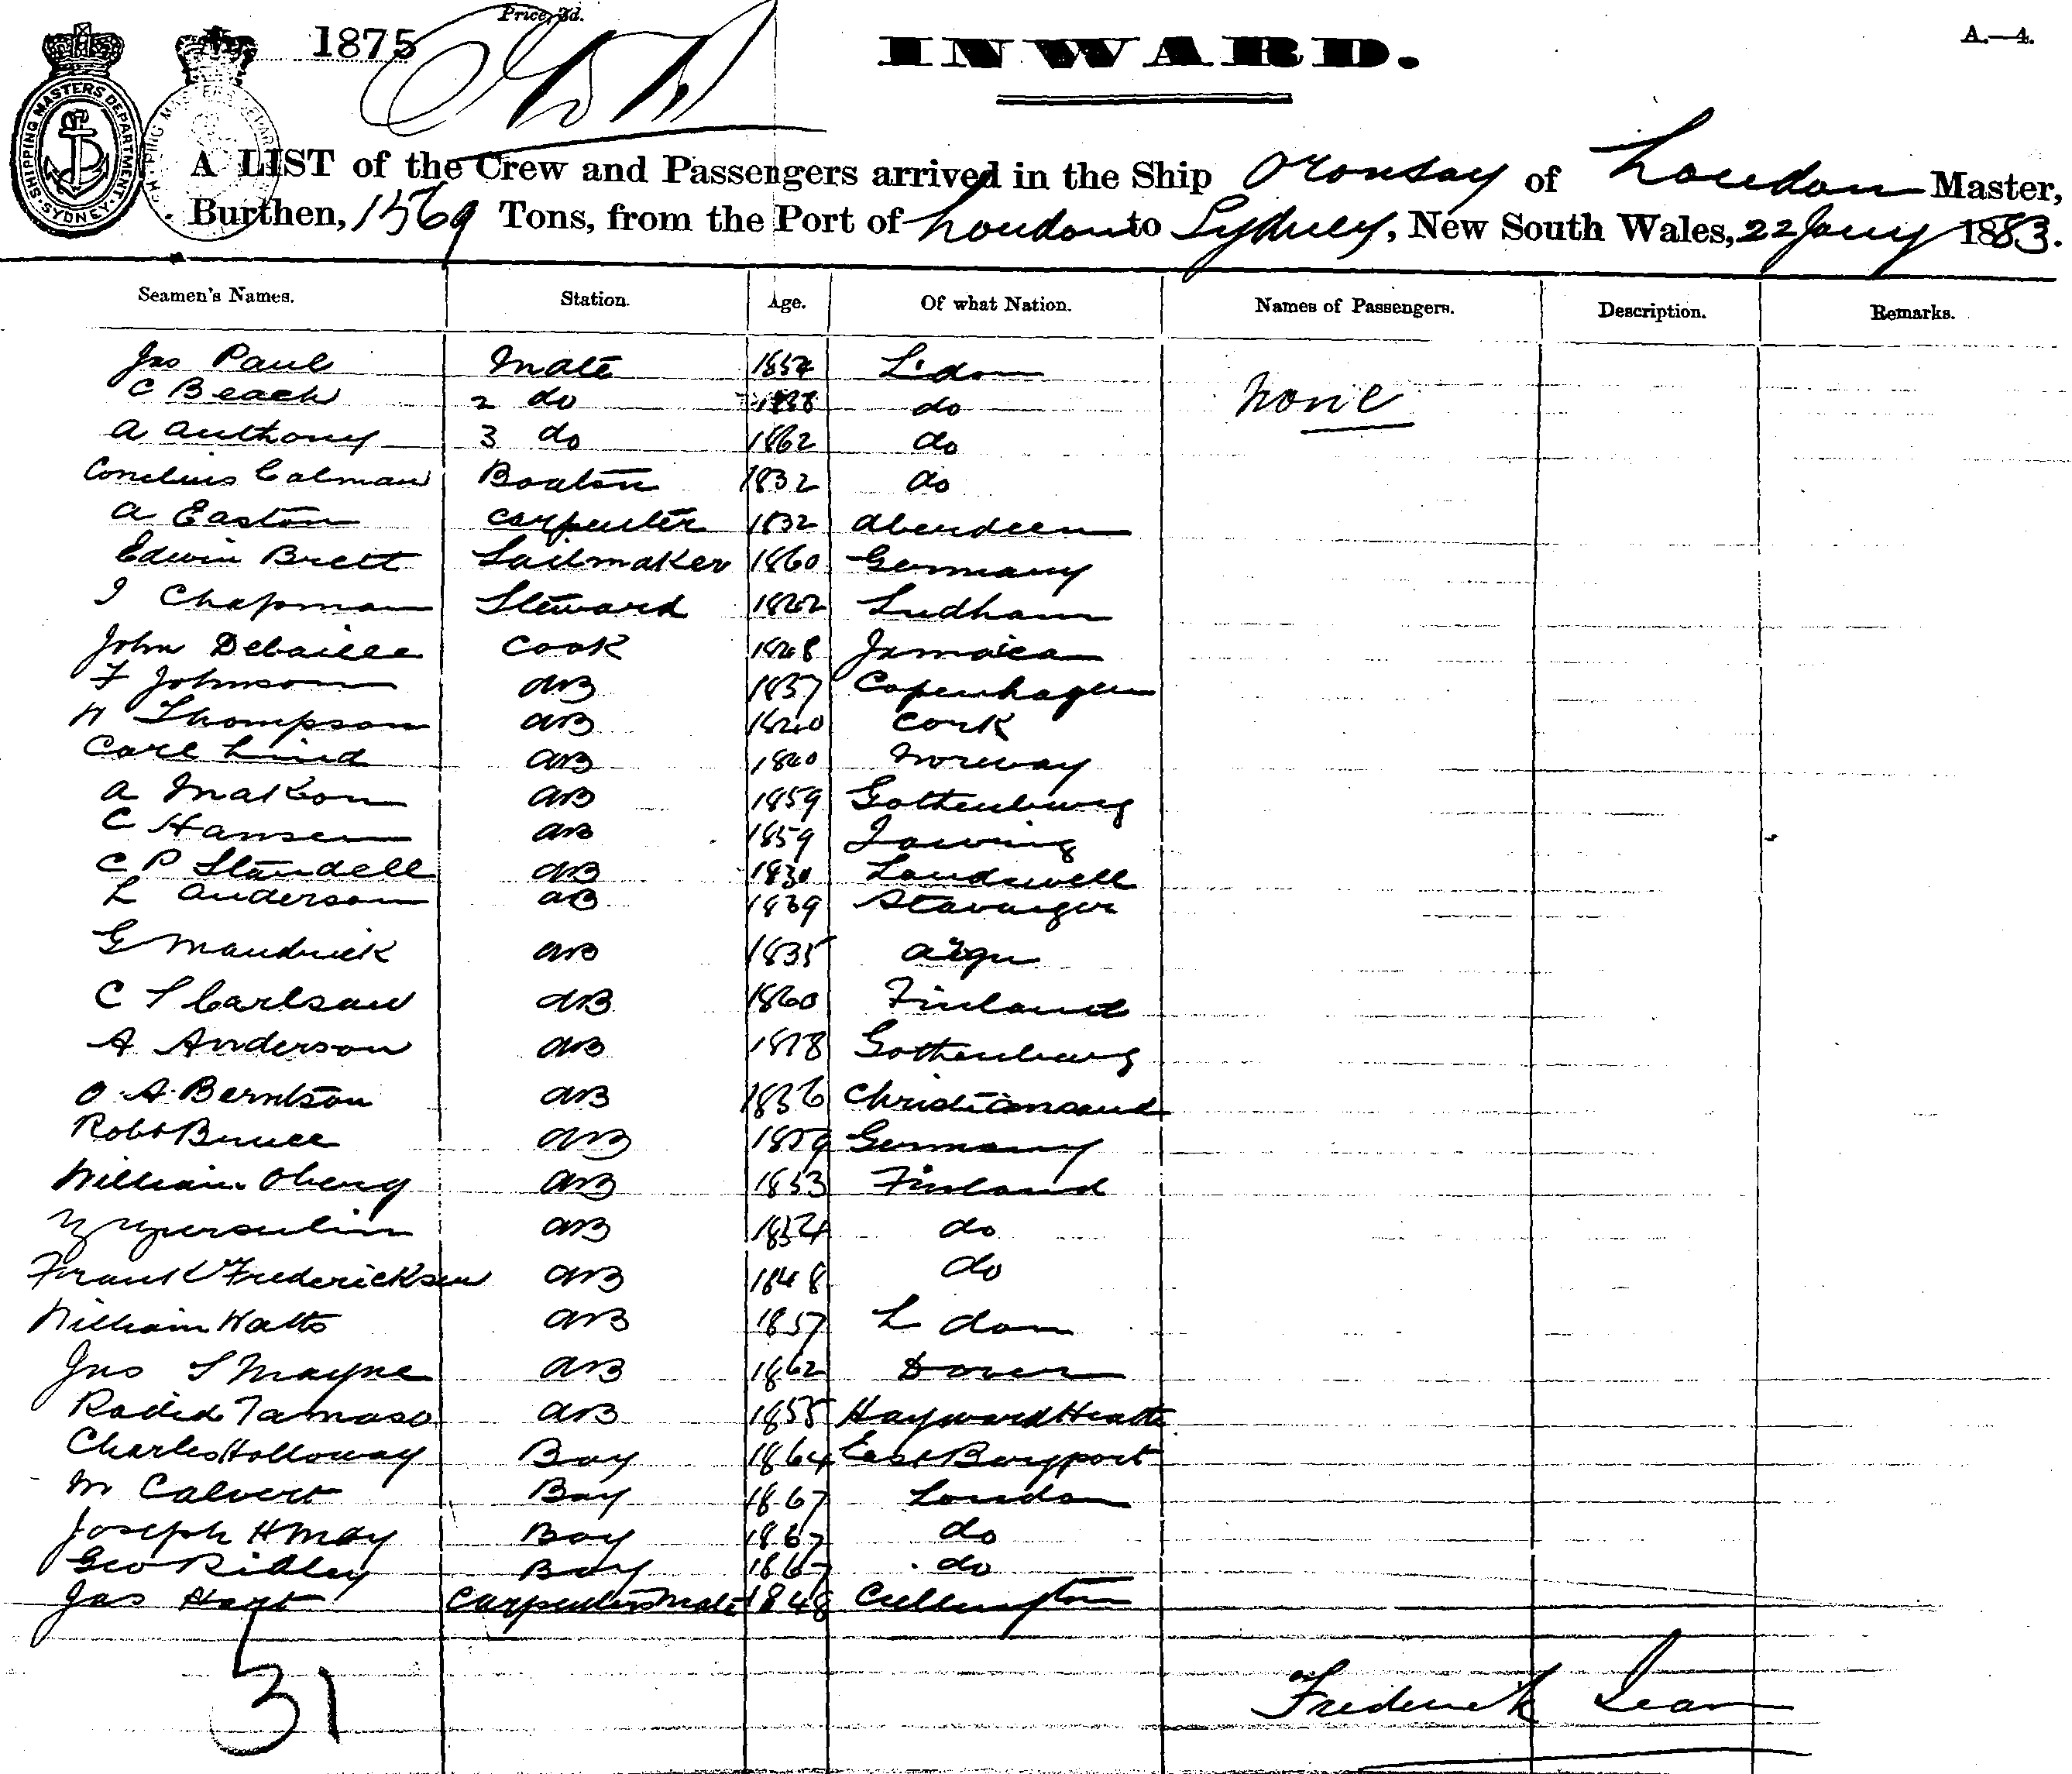 Price, 3d.
1875
INWARD.
A.—4.
SHIPPING MASTERS DEPARTMENT SYDNEY
A LIST of the Crew and Passengers arrived in the Ship Oronsay of London Master,
Burthen, 1569 Tons, from the Port of London to Sydney, New South Wales, 22 Jany 1883.
Seamen's Names. Station. Age. Of what Nation. Names of Passengers. Description. Remarks.
Jno Paul Mate 1854 Ldon none
C Beach 2 do do
A Anthony 3 do 1862 do
Cornelius Calman Boatsn 1832 do
A Easton Carpenter 1832 Aberdeen
Edwin Brett Sailmaker 1860 Germany
I Chapman Steward 1822 Ludham
John Debaille Cook 1828 Jamaica
F Johnson AB 1837 Copenhagen
W Thompson AB 1840 Cork
Carl Lind AB 1860 Norway
A Makom AB 1859 Gothenburg
C Hansen AB 1859
C P Standell AB 1830
L Anderson AB 1839 Stavanger
G Mandrick AB 1835
C S Carlsaw AB 1860 Finland
A Anderson AB Gothenburg
O A Berntson AB 1836 Christiansand
Robt Bruce AB 1859 Germany
William Oberg AB 1853 Finland
AB 1854 do
Frank Fredericksen AB 1848 do
William Watts AB 1857 L don
Jno S Mayne AB 1862 Dover
Tamaso AB 1855 Hayward Heath
Charles Holloway Boy 1864 East Bergport
M Calvert Boy 1867 London
Joseph H May Boy 1867 do
Geo Ridley Boy 1867 do
Jas Hart Carpenters Mate 1848 Cullington
31
Frederick Lean